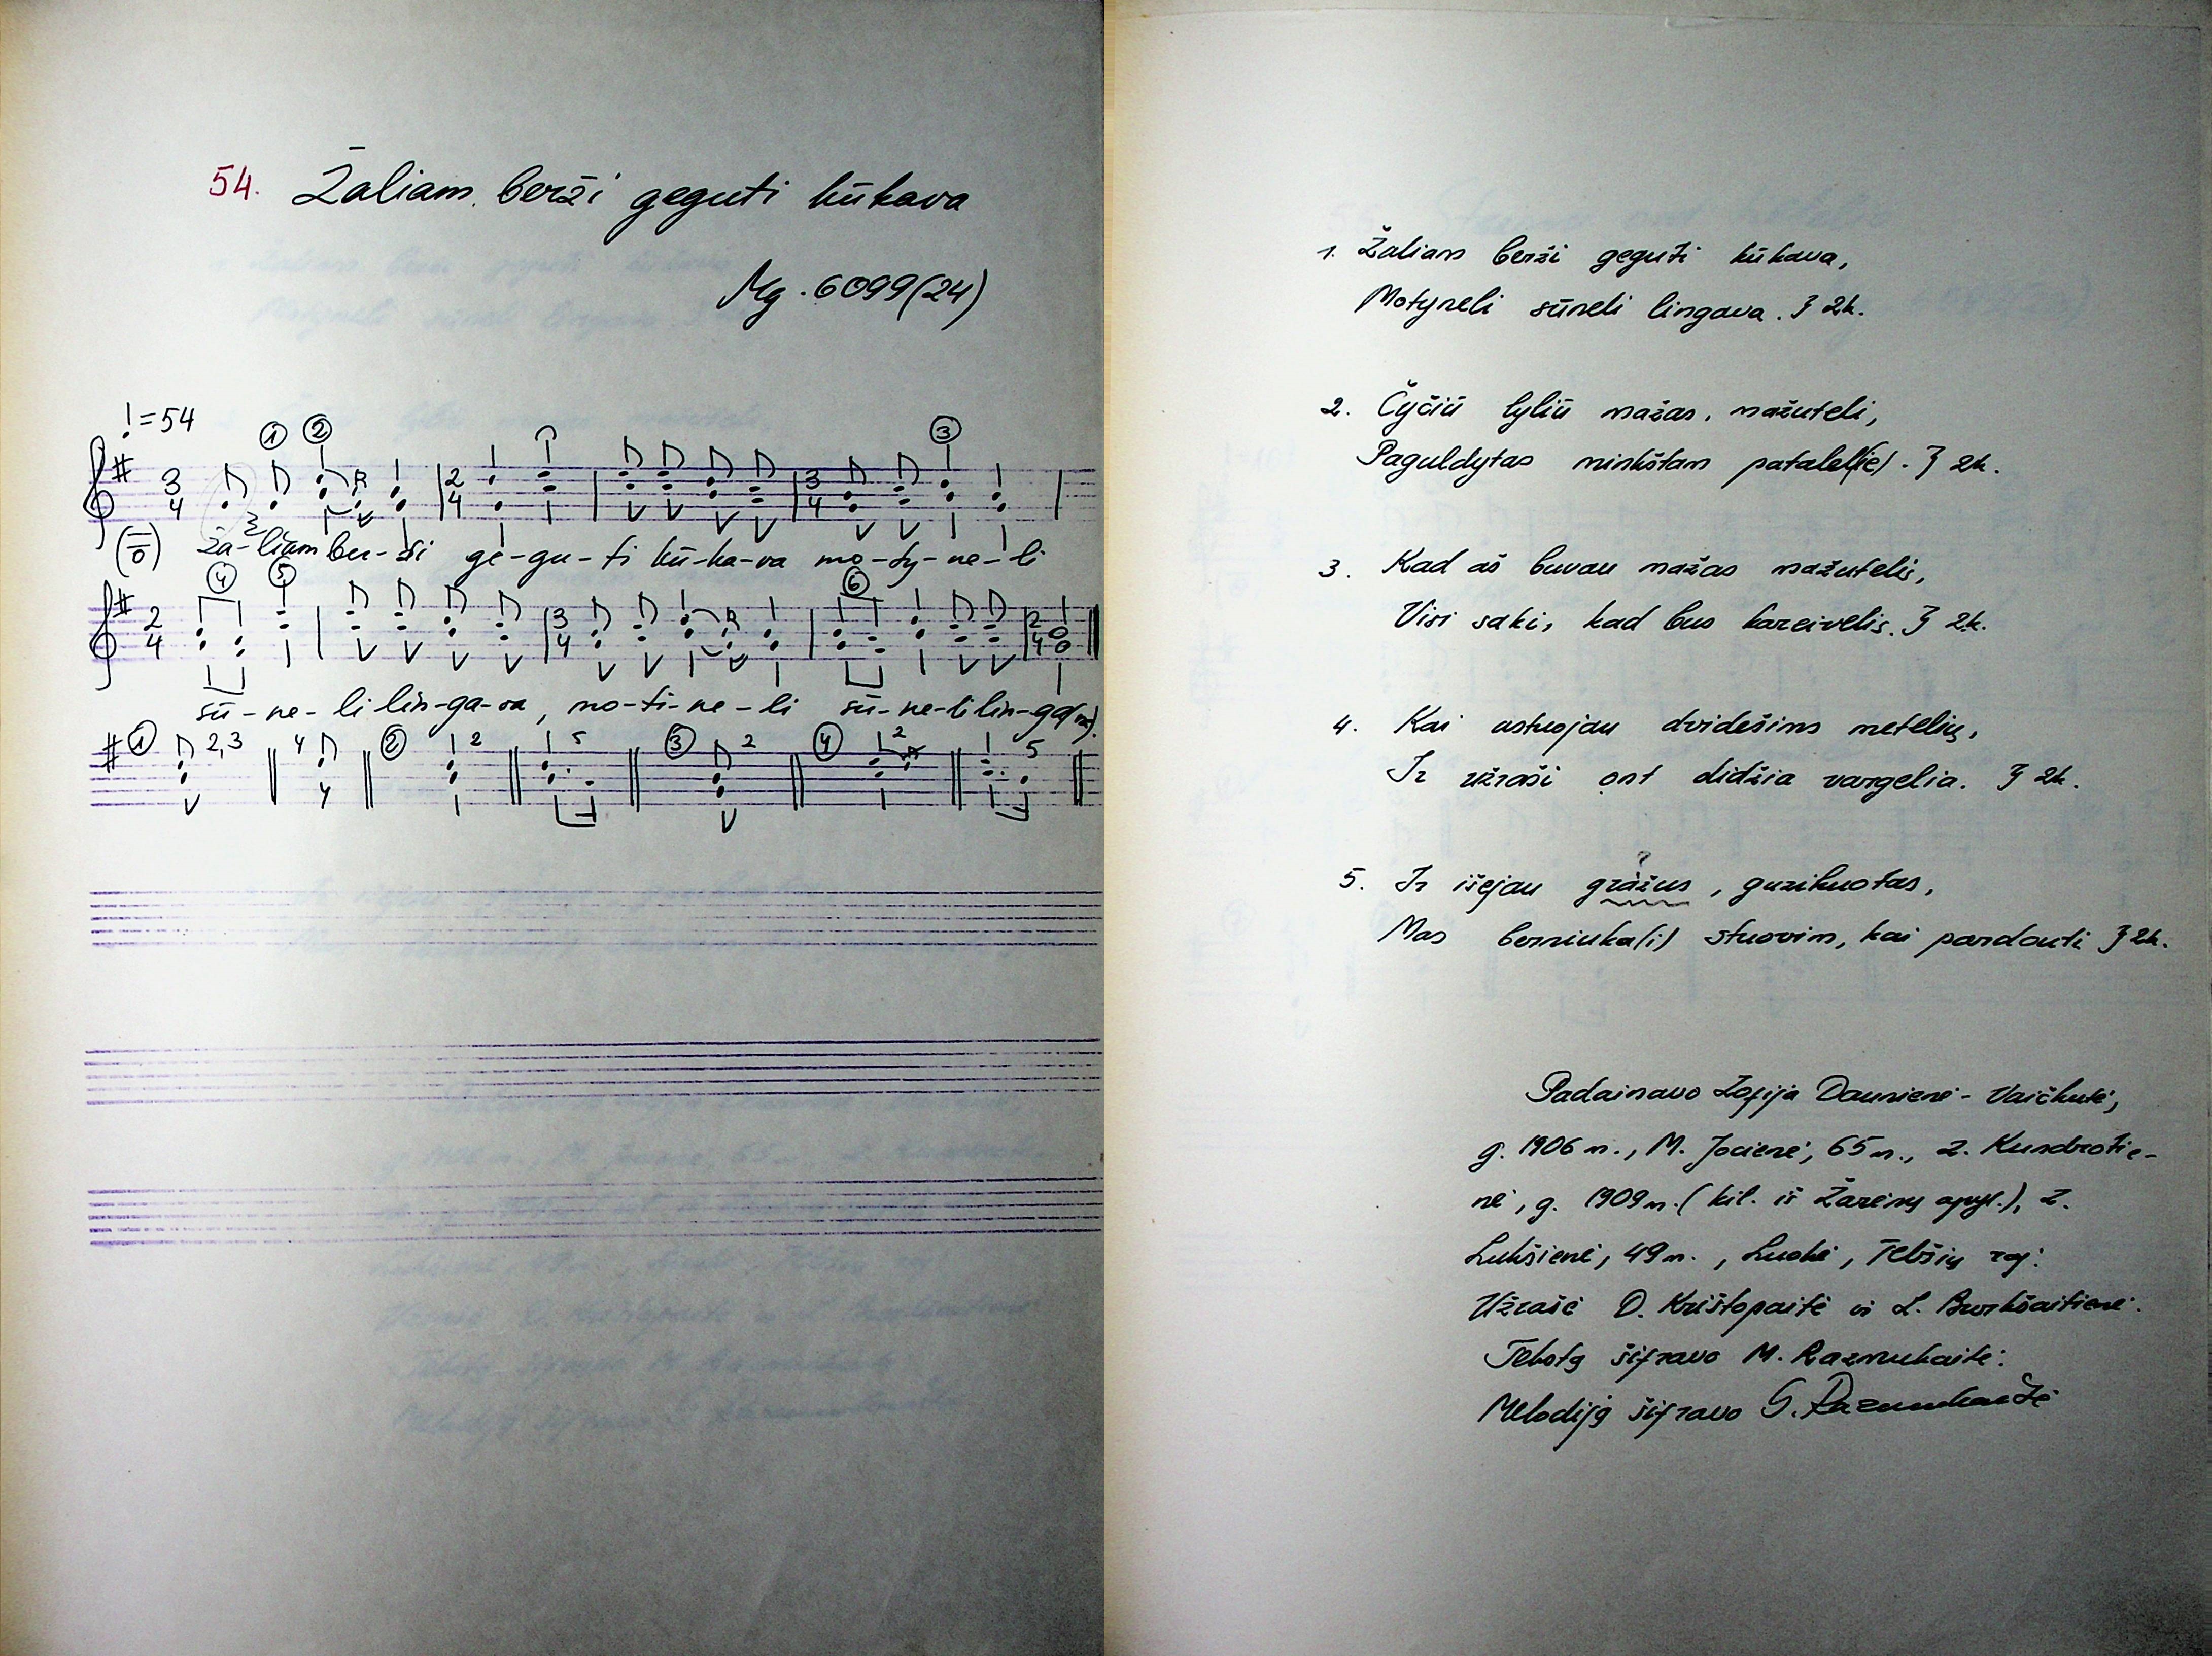 54. Žaliam berži geguti kūkava
Mg. 6099(24)
= 54
1 2 3
3 4 2 4 3 4
ža-liam ber-ži ge-gu-ti kū-ka-va mo-ty-ne-li
4 5 6
2 4 3 4 2 4
sū-ne-li lin-ga-va, mo-ti-ne-li sū-ne-li lin-ga(va).
1 2,3 4 2 2 5 3 2 4 2 5
1. Žaliam berži geguti kūkava,
Motyneli sūneli lingava. } 2k.
2. Čyčiū lyliū mažas, mažuteli,
Paguldytas minkštam patalel(ie). } 2k.
3. Kad aš buvau mažas mažutelis,
Visi saki, kad bus kareivelis. } 2k.
4. Kai ustuojau dvidešims metelių,
Ir užraši ont didžia vargelia. } 2k.
5. Ir išejau gražus, guzikuotas,
Mas berniuka(i) stuovim, kai pardouti } 2k.
Padainavo Zofija Daunienė-Vaičkutė,
g. 1906 m., M. Jocienė, 65 m., Z. Kundrotie-
nė, g. 1909 m. (kil. iš Žarėnų apyl.), Z.
Lukšienė, 49 m., Luokė, Telšių raj.
Užrašė D. Krištopaitė ir L. Burkšaitienė.
Tekstą šifravo M. Razmukaitė.
Melodiją šifravo G. Razmukaitė